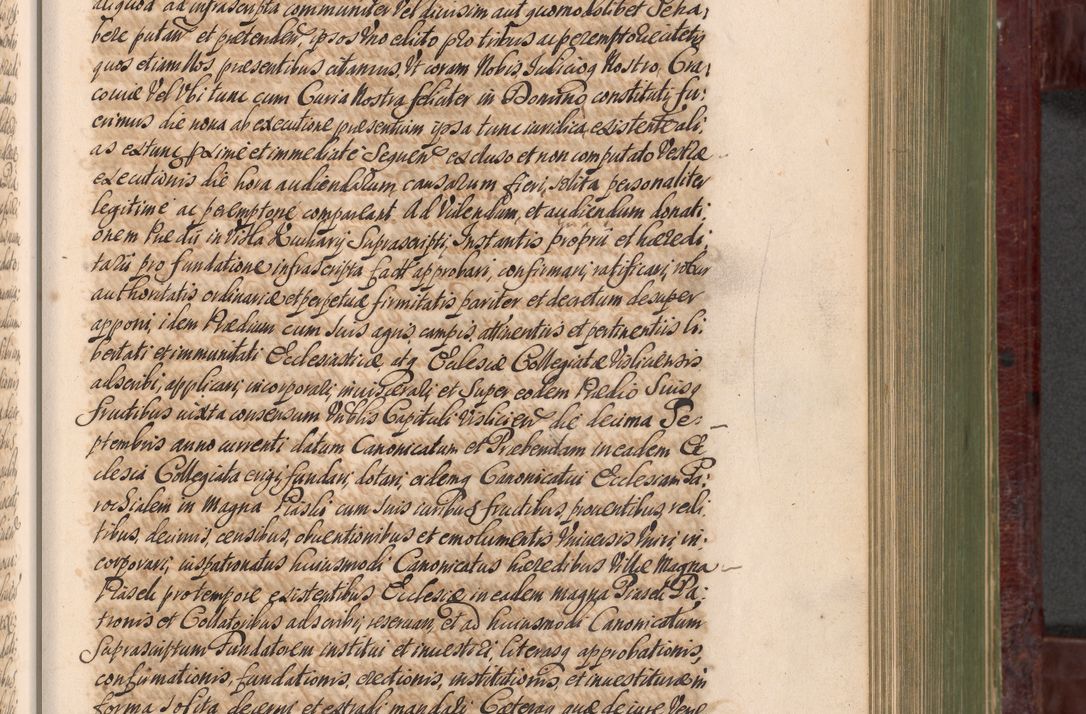 aliquod ad infrascripta communiter vel divisim aut quomodolibet Seha,
bere putan et prætenden, ipsos uno edicto pro tribus ac peremptorie citetis
quos etiam Nos præsentibus citamus, Ut coram Nobis Judicioq Nostro, Cra,
coviæ Vel Ubi tunc cum Curia Nostra feliciter in Domino constituti fu,
erimus die nona ab executione præsentium ipsa tunc iuridica existente ali,
as extunc proxime et immediate Sequen excluso et non computato Vestræ
executionis die hora audiendarum causarum fieri, solita personaliter
legitime ac peremptorie compareant Ad Videndum, et audiendum donati,
onem Prædii in Villa Kucharÿ Suprascripti, Instantis proprii et hæredi,
tarii pro fundatione infrascripta fact approbari, confirmari, ratificari, robur
authoritatis ordinariæ et perpetuæ firmitatis pariter et decretum desuper
apponi, idem Prædium cum Suis agris, campis, attinentiis et pertinentiis li,
bertati et immunitati Ecclesiasticæ, atq Ecclesiæ Collegiatæ Visliciensis
adscribi, applicari, incorporari, inviscerari, et Super eodem Prædio Suisq
fructibus iuxta consensum Vrblis Capituli Vislicien die decima Se,
ptembris anno currenti datum Canonicatum et Præbendam in eadem Ec
clesia Collegiata erigi, fundari, dotari, eidemq Canonicatui Ecclesiam Pa,
rochialem in Magna Piaski cum Suis iuribus fructibus, proventibus, redi,
tibus, decimis, censibus, obventionibus et emolumentis Universis Uniri in,
corporari, iuspatronatus huiusmodi Canonicatus hæredibus Villæ Magna
Piaseki pro tempore existentibus Ecclesiæ in eadem magna Piaseki Pa,
tronis et Collatoribus adscribi, reservari, et ad huiusmodi Canonicatum
Suprascriptum Fundatorem institui et investiri, literasq approbationis,
confirmationis, fundationis, erectionis, institutionis, et investituræ in
forma Solita decerni et extradi mandari. Cæteraq quæ de iure Vene